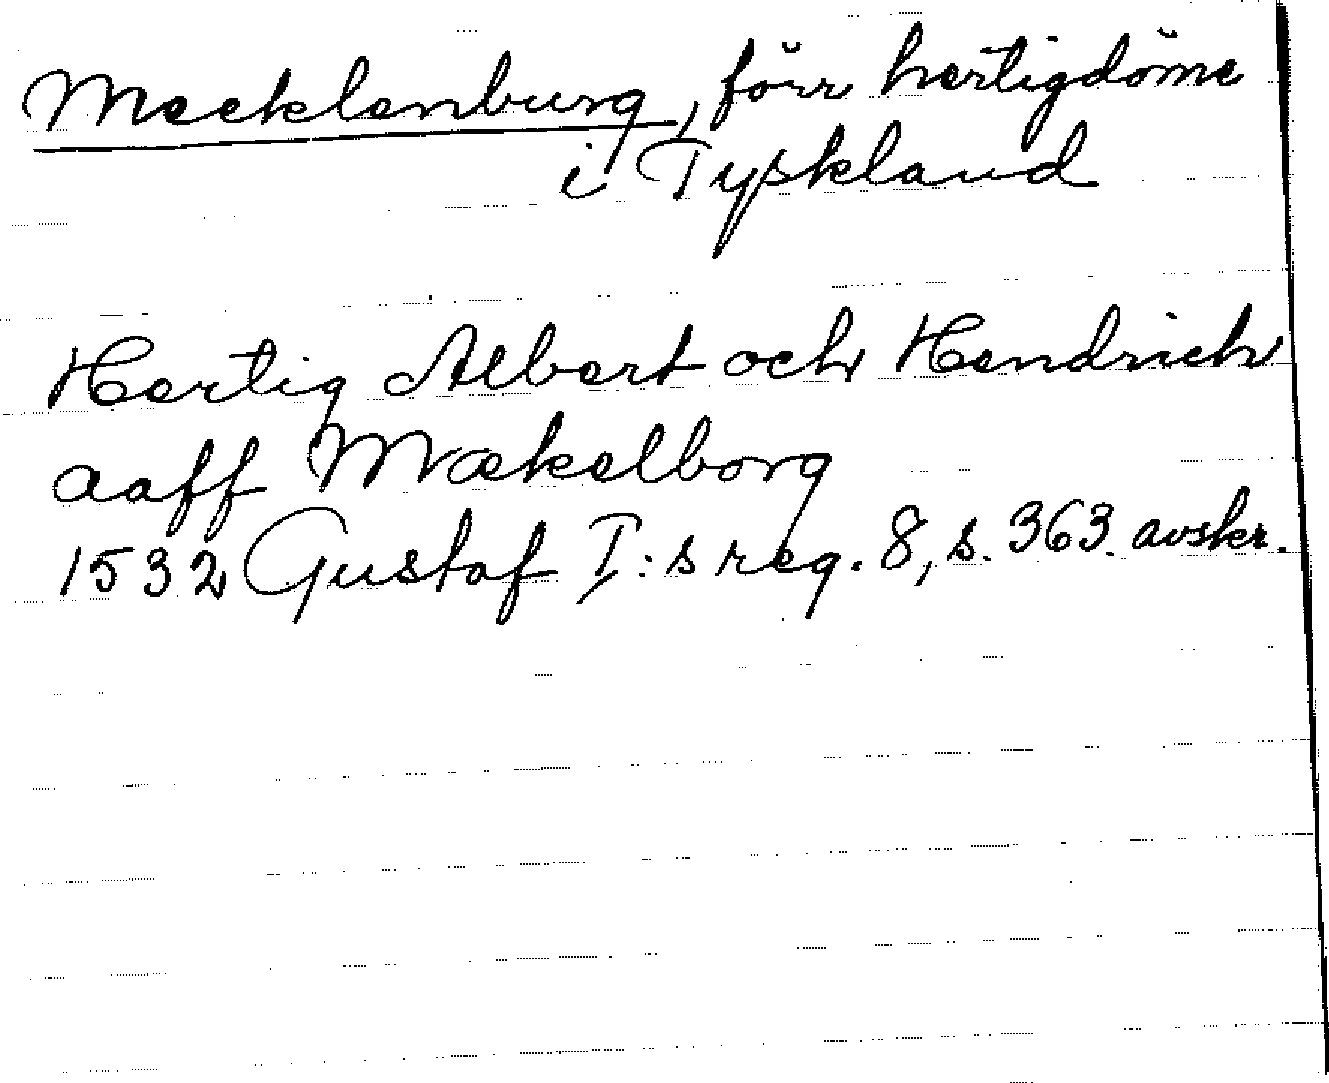 Mecklenburg, förr hertigdöme
i Tyskland
Hertig Albert och Hendrich
aaff Mækelborg
1532 Gustaf I:s reg. 8, s. 363. avskr.